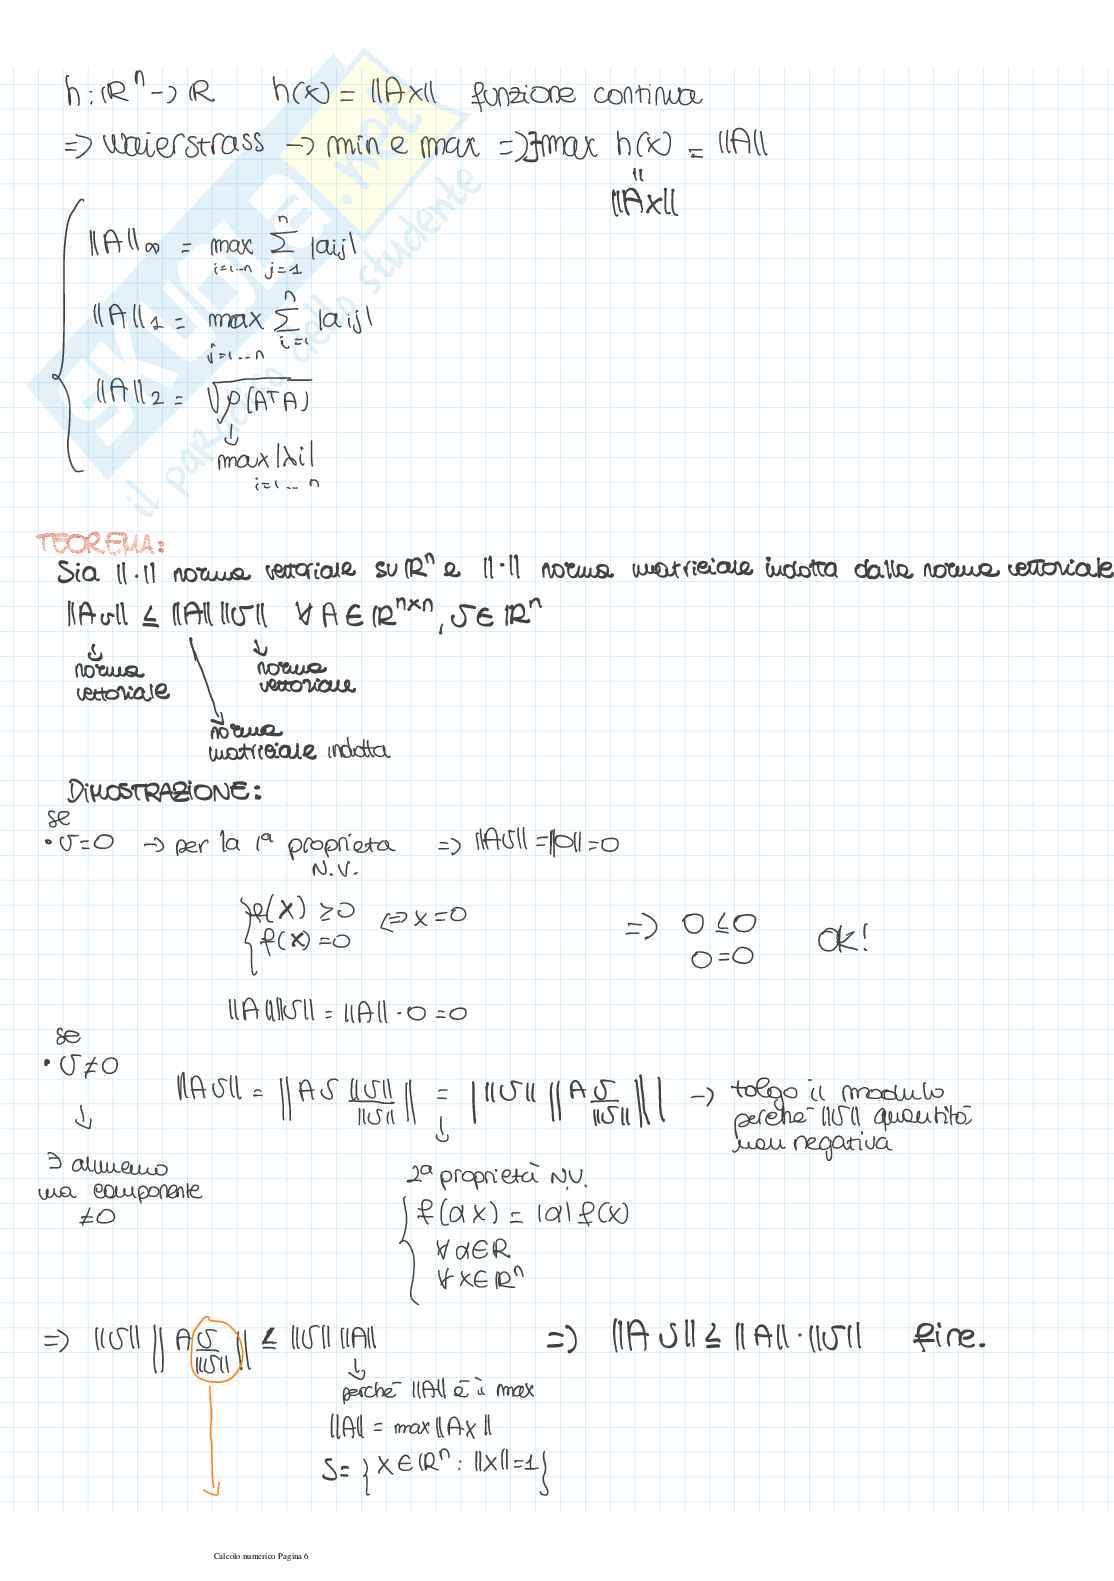 h: ℝⁿ -> ℝ h(x) = ||Ax|| funzione continua
=> Waierstrass -> min e max => ∃max h(x) = ||A||
||
||Ax||
||A||∞ = max ∑ |aij|
i=1...n j=1 n
||A||1 = max ∑ |aij|
j=1...n i=1 n
||A||2 = √ρ(AᵀA)
↓
max |λi|
i=1...n
TEOREMA:
Sia ||·|| norma vettoriale su ℝⁿ e ||·|| norma matriciale indotta dalla norma vettoriale
||Av|| ≤ ||A|| ||v|| ∀ A ∈ ℝⁿˣⁿ, v ∈ ℝⁿ
norma
vettoriale
norma
vettoriale
norma
matriciale indotta
DIMOSTRAZIONE:
se
• v=0 -> per la 1ª proprieta => ||Av|| = ||0|| = 0
N.V.
f(x) ≥0 <=> x=0
f(x) =0
=> 0 ≤ 0
0=0
OK!
||A|| ||v|| = ||A|| · 0 = 0
se
• v≠0
||Av|| = ||A v ||v||/||v|| || = | ||v|| ||A v/||v|| || | -> tolgo il modulo
perchè ||v|| quantità
non negativa
∃ almeno
una componente
≠0
2ª proprietà N.V.
f(αx) = |α| f(x)
∀ α∈ℝ
∀ x∈ℝⁿ
=> ||v|| ||A v/||v|| || ≤ ||v|| ||A|| => ||Av|| ≤ ||A|| · ||v|| fine.
perchè ||A|| è il max
||A|| = max ||Ax||
S= { x∈ℝⁿ : ||x||=1 }
SKUOLA.net
il paradiso dello studente
Calcolo numerico Pagina 6